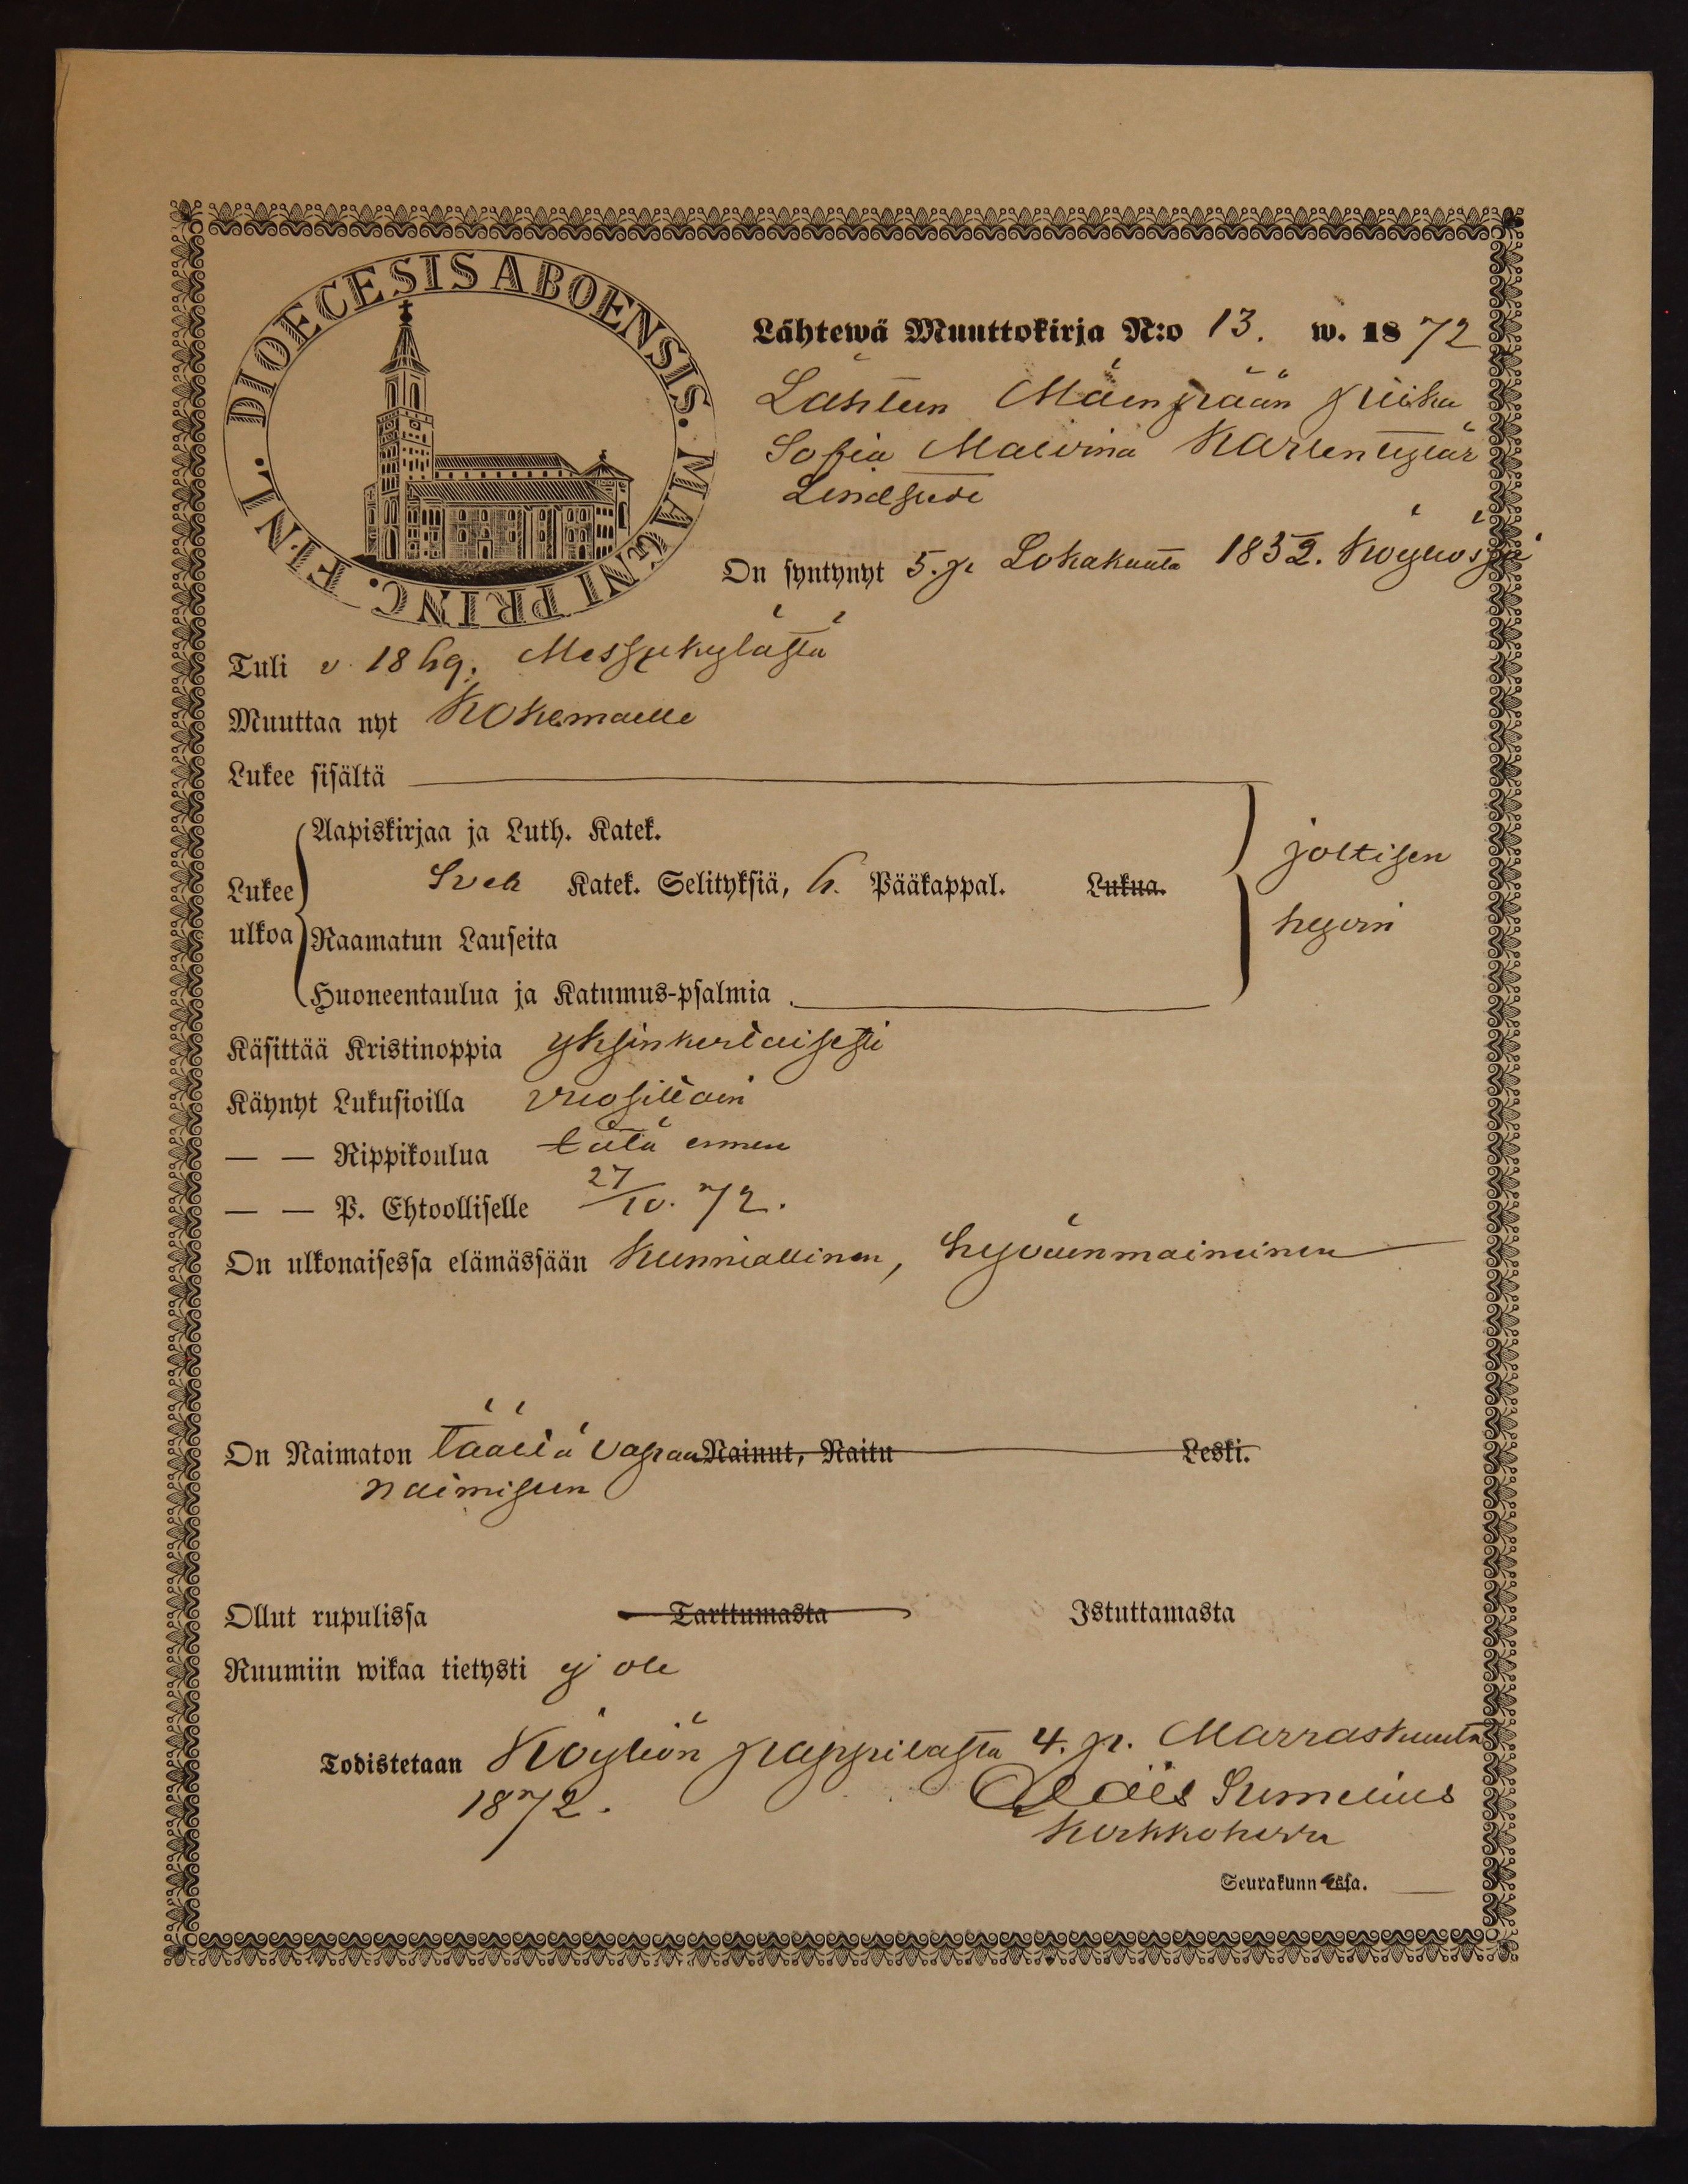 DIOECESIS ABOENSIS. MAGNI PRINC. FINL.
Lähtewä Muuttokirja N:o 13. w. 1872
Lähteen Mäenpään piika
Sofia Malvina Karlentytär
Lindqvist
On syntynyt 5. p. Lokakuuta 1852. Köyliössä
Tuli v. 1869. Messukylästä
Muuttaa nyt Kokemaelle
Lukee sisältä
Aapiskirjaa ja Luth. Katek.
joltisen
Lukee
Sveb Katek. Selityksiä, 6. Pääkappal. Lukua.
ulkoa
Raamatun Lauseita
hyvin
Huoneentaulua ja Katumus-psalmia
Käsittää Kristinoppia yksinkertaisesti
Käynyt Lukusioilla vuosittain
— — Rippikoulua tätä ennen
— — P. Ehtoolliselle 27/10. 72.
On ulkonaisessa elämässään kunniallinen, hyväänmaininen
On Naimaton täällä vapaa Nainut, Naitu Leski.
naimiseen
Ollut rupulissa Tarttumasta Istuttamasta
Ruumiin wikaa tietysti ej ole
Todistetaan Köyliön pappilasta 4. p. Marraskuuta
1872. Sumelius
Kirkkoherra
Seurakunnassa.